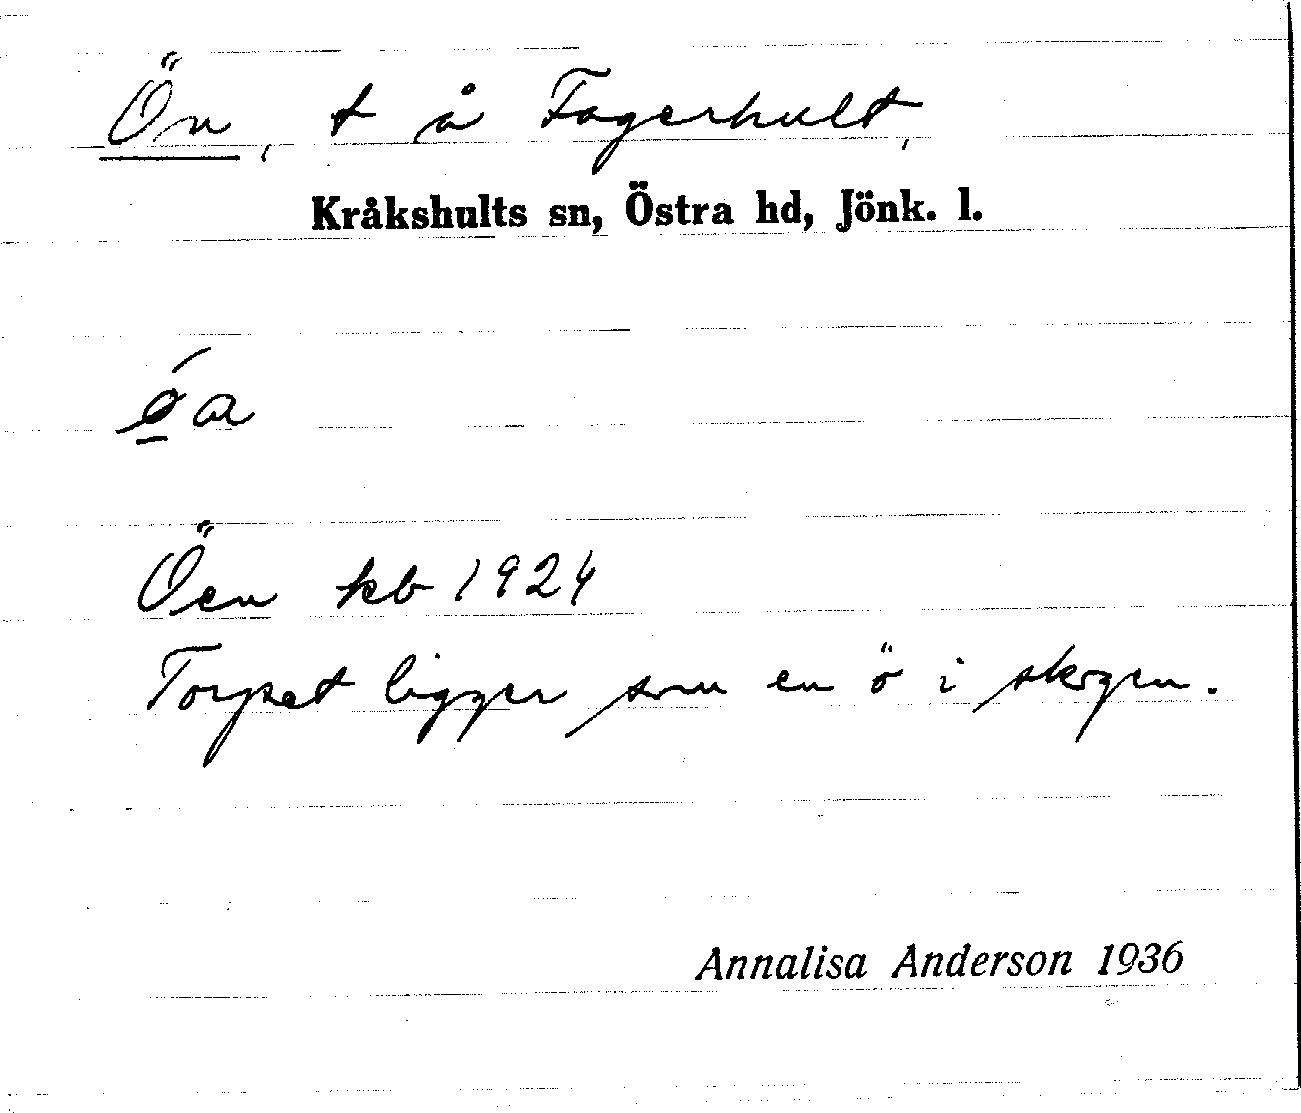 Ön, t å Fagerhult,
Kråkshults sn, Östra hd, Jönk. l.
ǿ̠a
Öen kb 1924
Torpet ligger som en ö i skogen.
Annalisa Anderson 1936